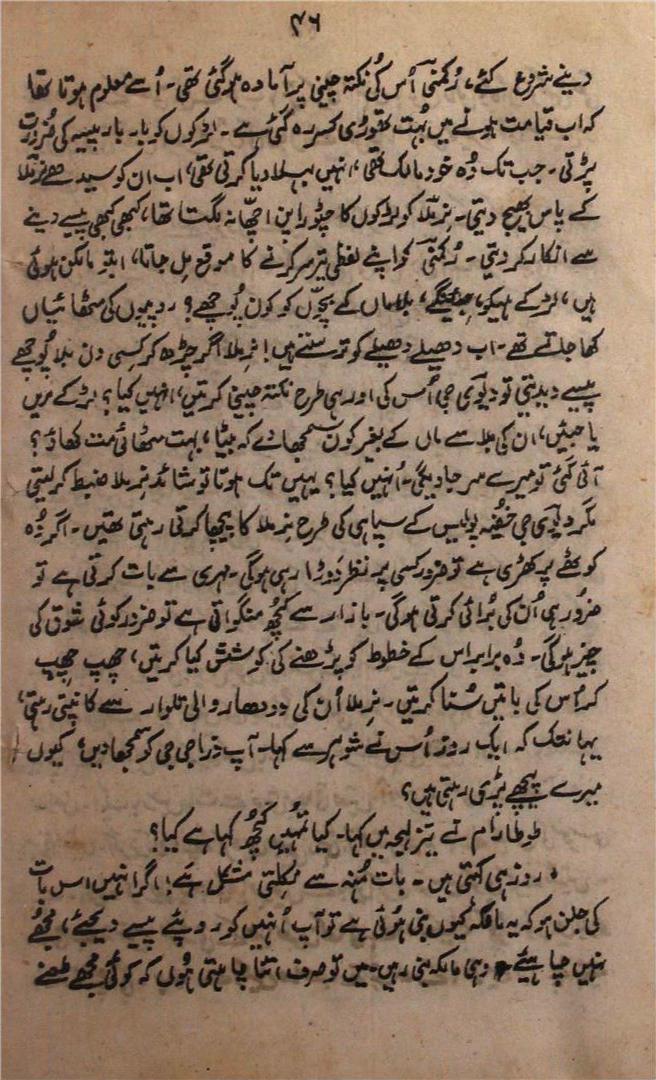 ۴۶
دینے شروع کئے، رُکمنی اُس کی نکتہ چینی پر آمادہ ہو گئی تھی۔ اُسے معلوم ہوتا تھا
کہ اب قیامت ہونے میں بُہت تھوڑی کسر رہ گئی ہے۔ لڑکوں کو بار بار پیسہ کی ضرورت
پڑتی۔ جب تک وُہ خود مالک تھی، انہیں بہلا دیا کرتی تھی، اب ان کو سیدھے نرملا
کے پاس بھیج دیتی۔ نرملا کو لڑکوں کا چٹوراپن اچھا نہ لگتا تھا، کبھی کبھی پیسے دینے
سے انکار کر دیتی۔ رُکمنی کو اپنے لفظی تیر سر کرنے کا موقع مِل جاتا، اب تو مالکن ہوئی
ہیں، لڑکے کاہیکو، جئینگے، بلا ماں کے بچّوں کو کون پُوچھے؟ روپیوں کی مٹھائیاں
کھا جاتے تھے۔ اب دھیلے دھیلے کو ترستے ہیں! نرملا اگر چڑھ کر کسی دن بلا پُوچھے
پیسے دیدیتی تو دیوی جی اُس کی اور ہی طرح نکتہ چینی کرتیں، انہیں کیا؟ لڑکے مریں
یا جئیں، ان کی بلا سے ماں کے بغیر کون سمجھاوے کہ بیٹا، بہت مٹھائی مت کھاؤ؟
آئی گئی تو میرے سر جاویگی۔ اُنہیں کیا؟ یہیں تک ہوتا تو شائد نرملا ضبط کر لیتی
مگر دیوی جی خفیہ پولیس کے سپاہی کی طرح نرملا کا پیچھا کرتی رہتی تھیں۔ اگر وُہ
کوٹھے پر کھڑی ہے تو ضرور کسی پر نظر دوڑا رہی ہوگی۔ مہری سے بات کرتی ہے تو
ضرور ہی اُن کی بُرائی کرتی ہوگی۔ بازار سے کُچھ منگواتی ہے تو ضرور کوئی شوق کی
چیز ہوگی۔ وُہ برابر اس کے خطوط کو پڑھنے کی کوشش کیا کرتیں، چھپ چھپ
کر اُس کی باتیں سُنا کرتیں۔ نرملا اُن کی دودھار والی تلوار سے کانپتی رہتی،
یہانتک کہ ایک روز اُس نے شوہر سے کہا۔ آپ ذرا جی جی کو سمجھا دیں، کیوں
میرے پیچھے پڑی رہتی ہیں؟
طوطا رام نے تیز لہجہ میں کہا۔ کیا تمہیں کُچھ کہا ہے کیا؟
روز ہی کہتی ہیں۔ بات مُنہ سے نِکلتی مشکل ہے! اگر انہیں اس بات
کی جلن ہو کہ یہ مالکہ کیوں بنی ہُوئی ہے تو آپ اُنہیں کو روپئے پیسے دیجئے، مجھے
نہیں چاہئیے وہی مالکہ بنی رہیں۔ میں تو صرف اتنا چاہتی ہُوں کہ کوئی مجھے طعنے